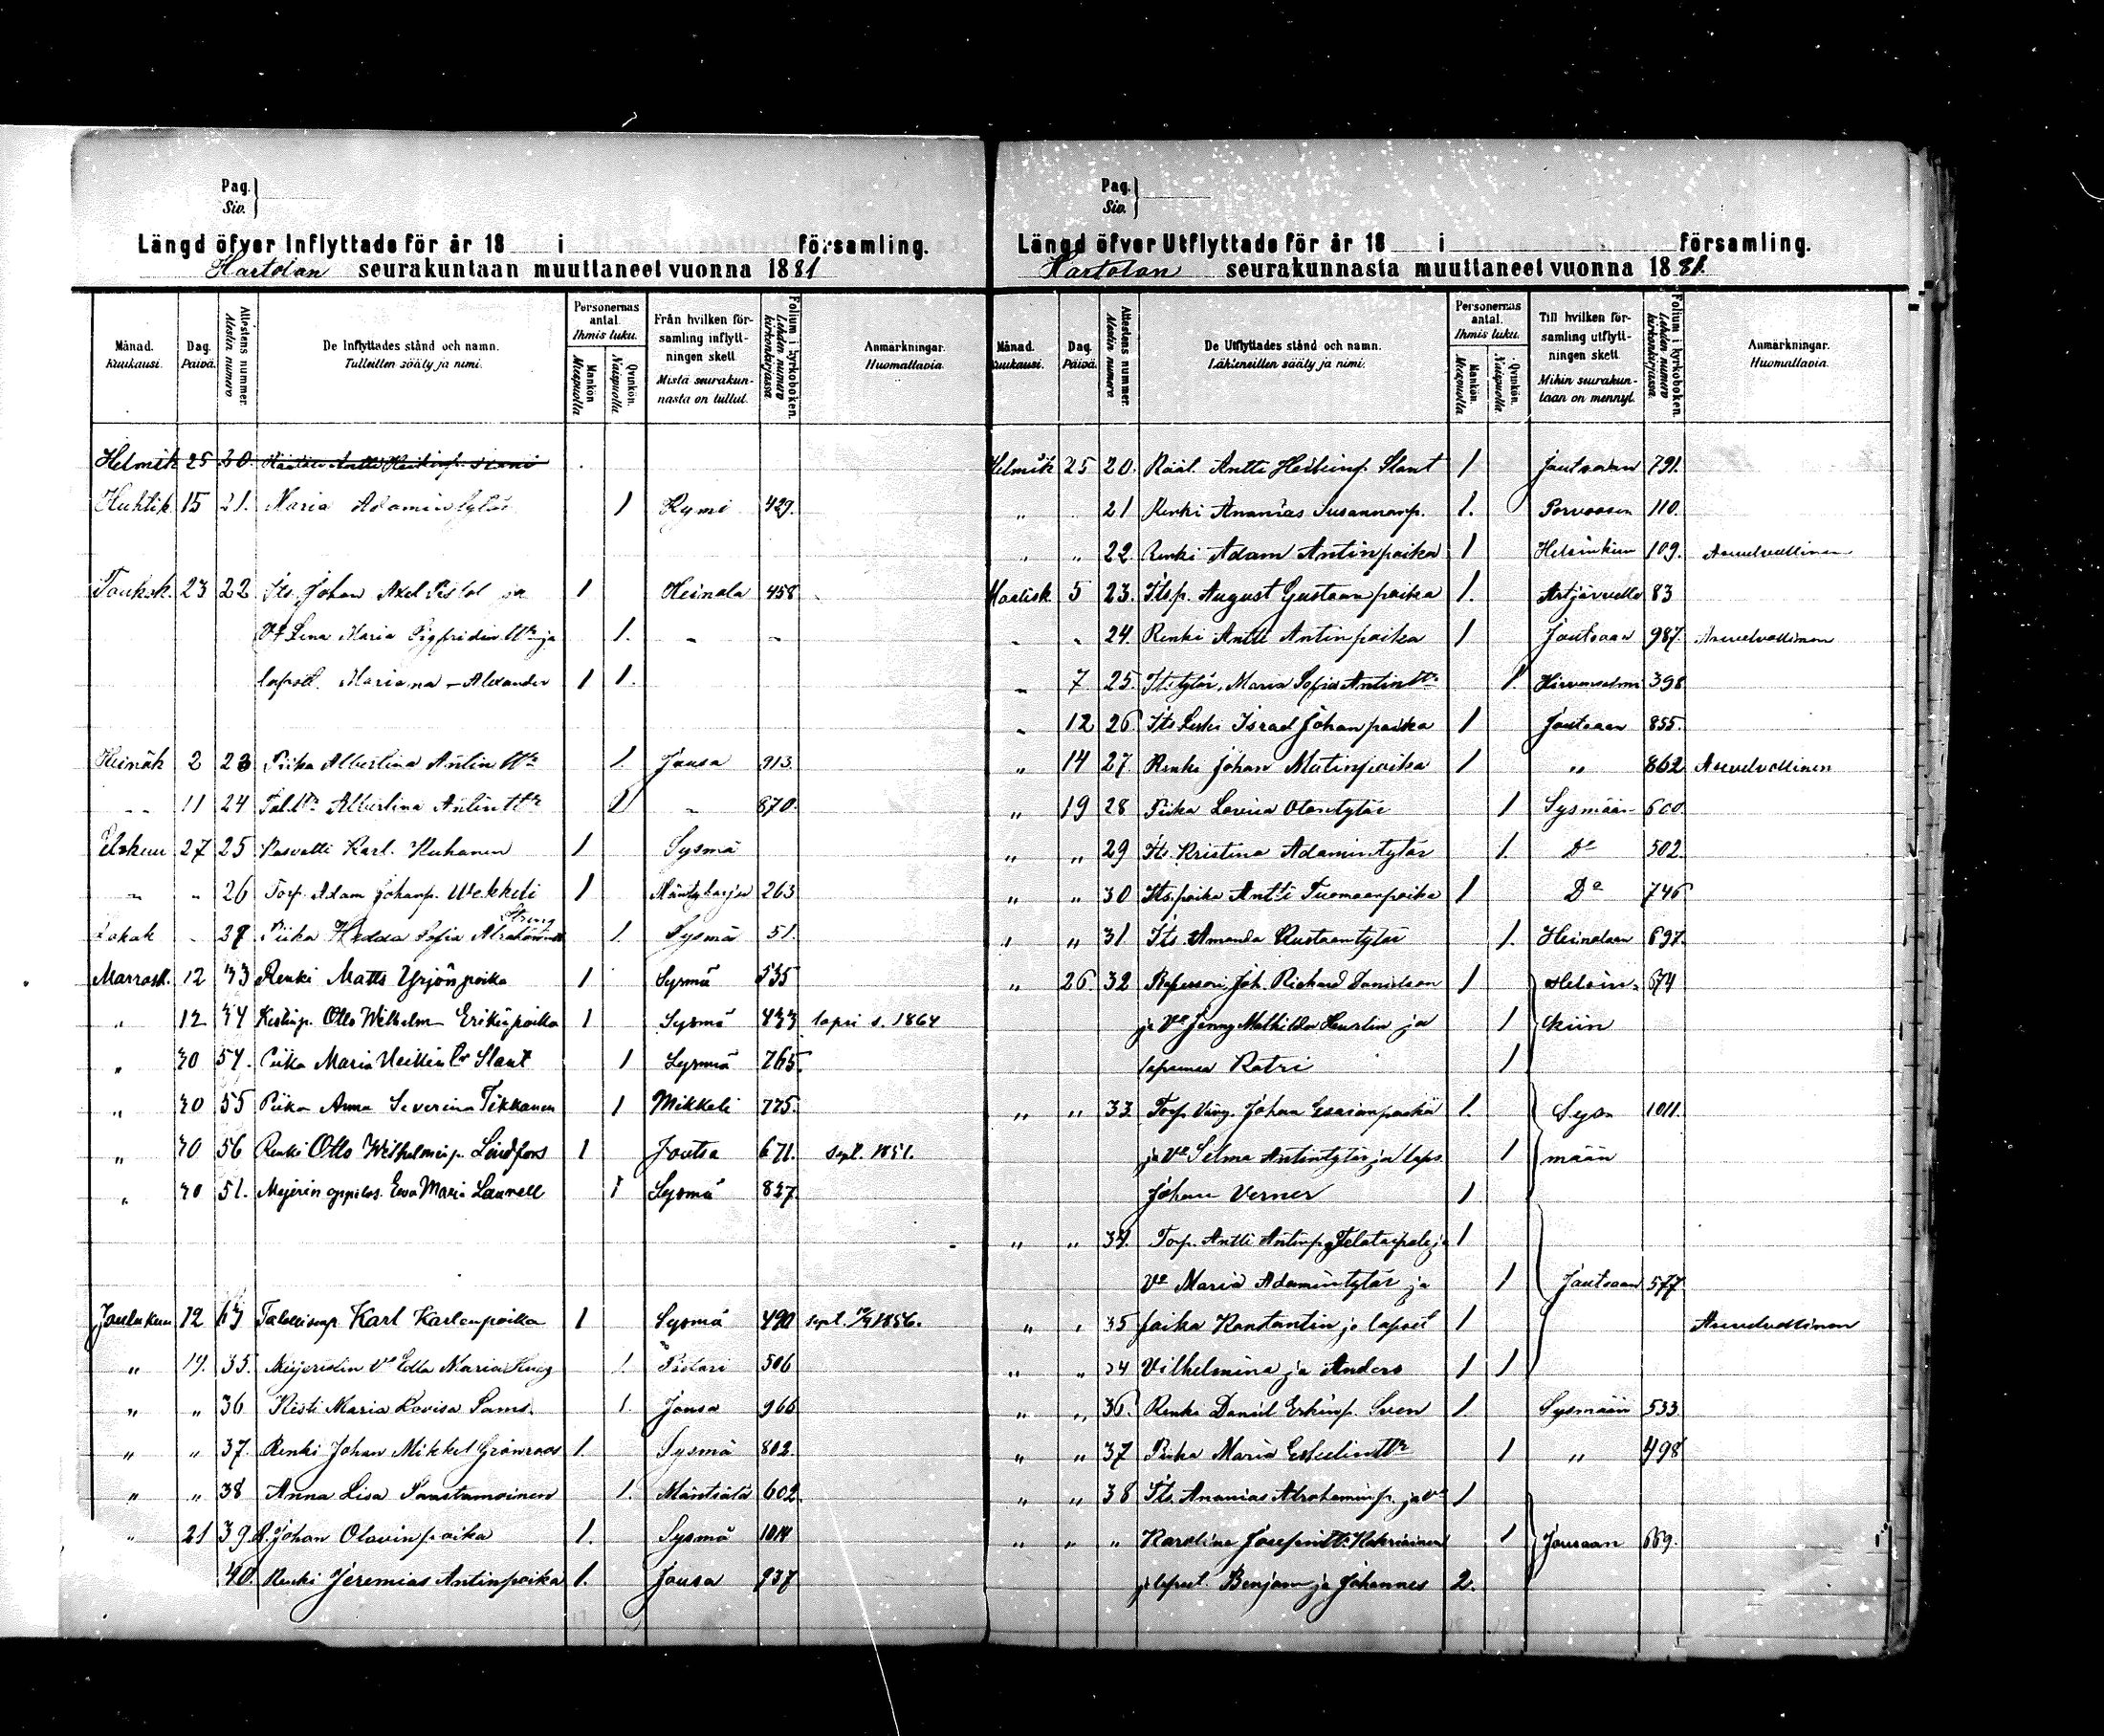 Pag.
Siv.
Längd öfver Inflyttade för år 18 i församling.
Hartolan seurakuntaan muuttaneet vuonna 1881
Månad. Kuukausi.
Dag. Päivä.
Attestens nummer. Alestin numero
De Inflyttades stånd och namn. Tulleitten sääty ja nimi.
Personernas antal. Ihmis luku.
Mankön Miespuolia
Qvinkön. Naispuolia
Från hvilken församling inflyttningen skett Mistä seurakunnasta on tullut.
Folium i kyrkoboken. Lehden numero kirkonkirjassa
Anmärkningar. Huomattavia.
Helmik 25 20.
Huhtik 15 21. Maria Adamintytär 1 Kymi 429.
Toukok. 23 22 Its. Johan Axel ja 1 Heinola 458
Vo Lena Maria ja 1. - -
lapset. Mariana - Alexander 1 1.
Heinäk 2 23 Piika Albertina Antin ttr 1. Jousa 913.
- 11 24 Tal.ttr Albertina Antin ttr 1 - 870.
Elokuu 27 25 Karl. Ruhanen 1 Sysmä
- - 26 Torp. Adam Johanp. Wekkeli 1 Mäntyharju 263
Lokak - 27 Piika Hedda Sofia 1. Sysmä 51.
Marrask. 12 33 Renki Matts Yrjönpoika 1 Sysmä 535
" 12 34 Otto Wilhelm Erikinpoika 1 Sysmä 433 s. 1864
" 30 54. Piika Maria Heikin tr Slant 1 Sysmä 765.
" 30 55 Piika Anna Severina Tikkanen 1 Mikkeli 775.
" 30 56 Renki Otto Wilhelminp. Lindfors 1 Joutsa 671. 1851.
" 30 51. Mejerin oppilas. Eva Maria Launell 1 Sysmä 837
Jouluku 12 63 Karl Karlenpoika 1 Sysmä 490 1856.
" 19. 35. Vo Edla Maria 1. 506
" " 36 Maria Lovisa Sams. 1. Jousa 966
" " 37. Renki Johan Mikkel Grönroos 1. Sysmä 802.
" " 38 Anna Lisa Saastamoinen 1. Mäntsälä 602
" 21 39 Johan Olavinpoika 1. Sysmä 1014
40. Renki Jeremias Antinpoika 1. Jousa 937
Pag.
Siv.
Längd öfver Utflyttade för år 18 i församling.
Hartolan seurakunnasta muuttaneet vuonna 1881.
Månad. Kuukausi.
Dag. Päivä.
Attestens nummer. Alestin numero
De Utflyttades stånd och namn. Lähteneitten sääty ja nimi.
Personernas antal. Ihmis luku.
Mankön. Miespuolia
Qvinkön. Naispuolia
Till hvilken församling utflyttningen skett Mihin seurakuntaan on mennyt.
Folium i kyrkoboken. Lehden numero kirkonkirjassa.
Anmärkningar. Huomattavia.
Helmik 25 20. Räät. Antti Heikinp. Slant 1 Joutsaan 791.
" 21 Renki Ananias Susannanp. 1. Porvoosen 110.
" " 22. Renki Adam Antinpoika 1 Helsinkiin 109. Asevelvollinen
Maalisk 5 23. Itsp. August Gustaanpoika 1. Artjärvelle 83
- - 24. Renki Antti Antinpoika 1 Joutsaan 987. Asevelvollinen
- 7. 25. Its. tytär, Maria Sofia Antin ttr 1. Hirvensalmi 398
- 12 26 Its. Leski Israel Johanpoika 1 Joutsaan 855.
" 14 27. Renki Johan Matinpoika 1 " 862 Asevelvollinen
" 19 28 Piika Lovisa Otontytär 1 Sysmään 600.
" " 29 Its. Kristina Adamintytär 1. Do 502.
" " 30 Its. poika Antti Tuomaanpoika 1 Do 746
" " 31 Its. Amanda Kustaantytär 1. Heinolaan 697.
" 26. 32 Joh. Richard Danielson 1 Helsin- 674
ja Vo Jenny Mathilda ja 1 kiin
lapsensa Katri 1
" " 33. Torp. Johan Esaianpoika 1. Sys- 1011.
ja Vo Selma Antintytär ja laps. 1 mään
Johan Verner 1
" " 34. Torp. Antti Antinp. ja 1
Vo Maria Adamintytär ja 1 Joutsaan 577
" " 35 poika Konstantin ja lapset 1 Asevelvollinen
" " 34 Vilhelmina ja Anders 1 1
" " 36. Renki Daniel Erkinp. Sven 1. Sysmään 533
" " 37 Piika Maria ttr 1 " 498
" " 38 Its. Ananias Abrahaminp. ja Vo 1
" " " Karolina Josefin ttr 1 Jousaan 669.
ja lapset. Benjam ja Johannes 2.